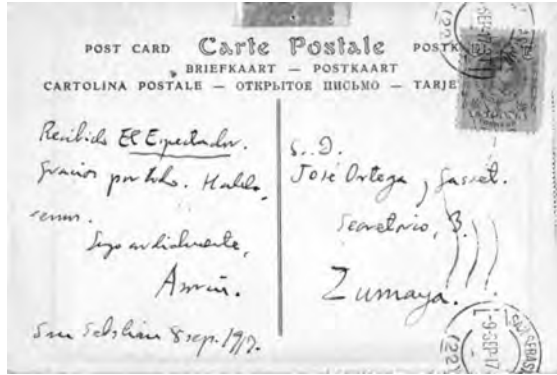 POST CARD Carte Postale POSTK
BRIEFKAART — POSTKAART
CARTOLINA POSTALE — ОТКРЫТОЕ ПИСЬМО — TARJE
Recibido El Espectador.
Gracias por todo. Habla-
remos.
Suyo cordialmente,
Azorín.
San Sebastián 8 sep. 1917.
S. D.
José Ortega y Gasset.
Secretario, 3.
Zumaya.
9-SEP-17
(22)